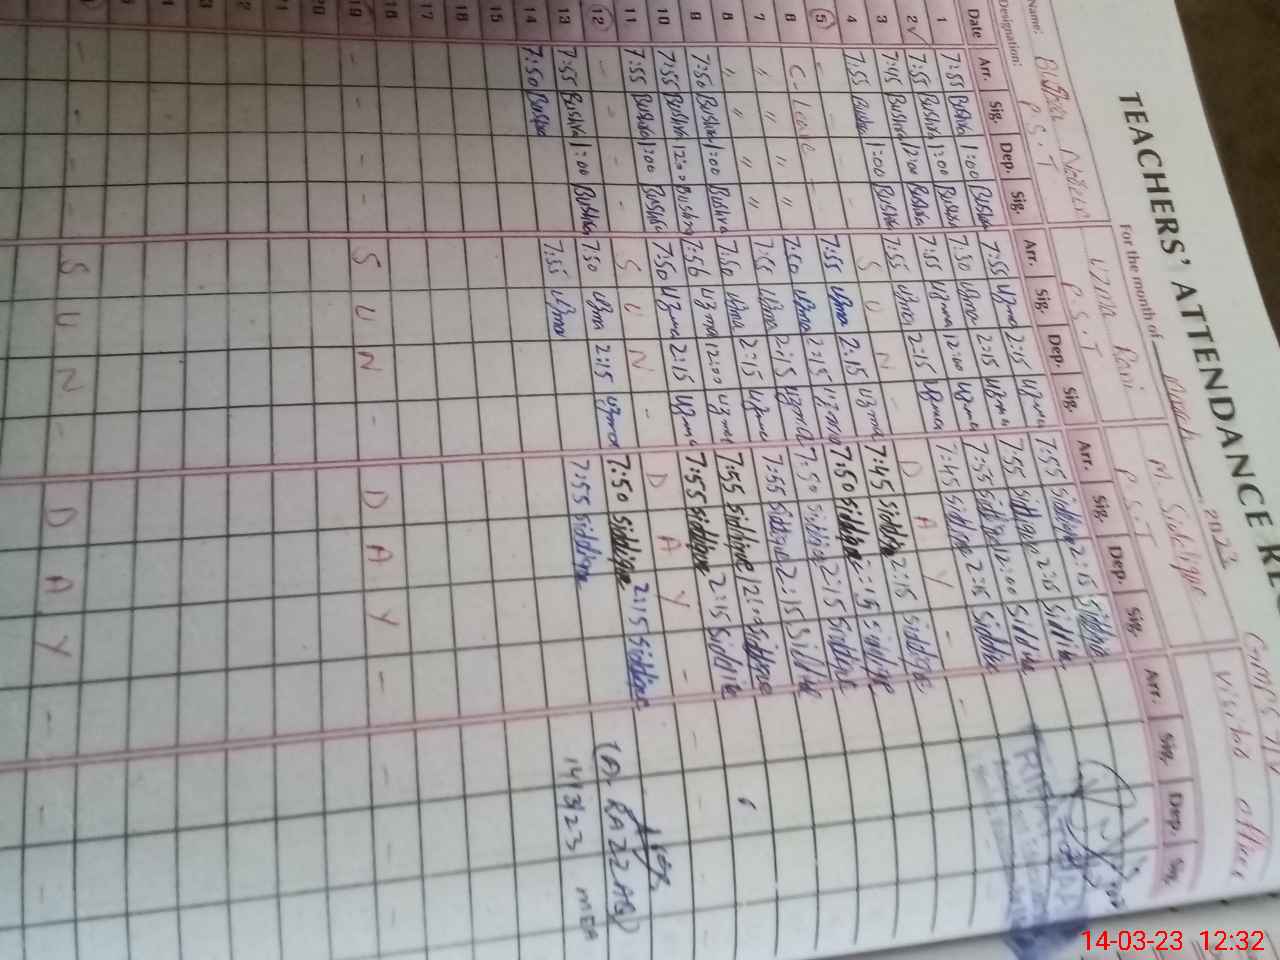 TEACHERS' ATTENDANCE
For the month of March 2023
Name: Bushra Uzma Rani M. Siddique
Designation: P.S.T P.S.T P.S.T
visited office
Date Arr. Sig. Dep. Sig. Arr. Sig. Dep. Sig. Arr. Sig. Dep. Sig. Arr. Sig. Dep. Sig.
1 7:55 Bushra 1:00 Bushra 7:55 Uzma 2:15 Uzma 7:55 Siddique 2:15 Siddique
2 7:55 Bushra 1:00 Bushra 7:50 Uzma 2:15 Uzma 7:55 Siddique 2:15 Siddique
3 7:45 Bushra 12:00 Bushra 7:55 Uzma 12:00 Uzma 7:55 Siddique 12:00 Siddique
4 7:55 Bushra 1:00 Bushra 7:55 Uzma 2:15 Uzma 7:45 Siddique 2:15 Siddique
5 - - - - S U N - D A Y -
6 C-Leave 7:55 Uzma 2:15 Uzma 7:45 Siddique 2:15 Siddique
7 " " " " 7:50 Uzma 2:15 Uzma 7:50 Siddique 2:15 Siddique
8 " " " " 7:55 Uzma 2:15 Uzma 7:50 Siddique 2:15 Siddique
9 7:50 Bushra 1:00 Bushra 7:50 Uzma 2:15 Uzma 7:55 Siddique 2:15 Siddique
10 7:55 Bushra 12:00 Bushra 7:56 Uzma 12:00 Uzma 7:55 Siddique 12:00 Siddique
11 7:55 Bushra 1:00 Bushra 7:50 Uzma 2:15 Uzma 7:55 Siddique 2:15 Siddique
12 - - - - S U N - D A Y -
13 7:55 Bushra 1:00 Bushra 7:50 Uzma 2:15 Uzma 7:50 Siddique 2:15 Siddique
14 7:50 Bushra 7:55 Uzma 7:55 Siddique
(A. RAZZAQ)
14/3/23 MEA
15
16
17
18
19 - - - - S U N - D A Y -
20
21
22
S U N - D A Y -
14-03-23 12:32